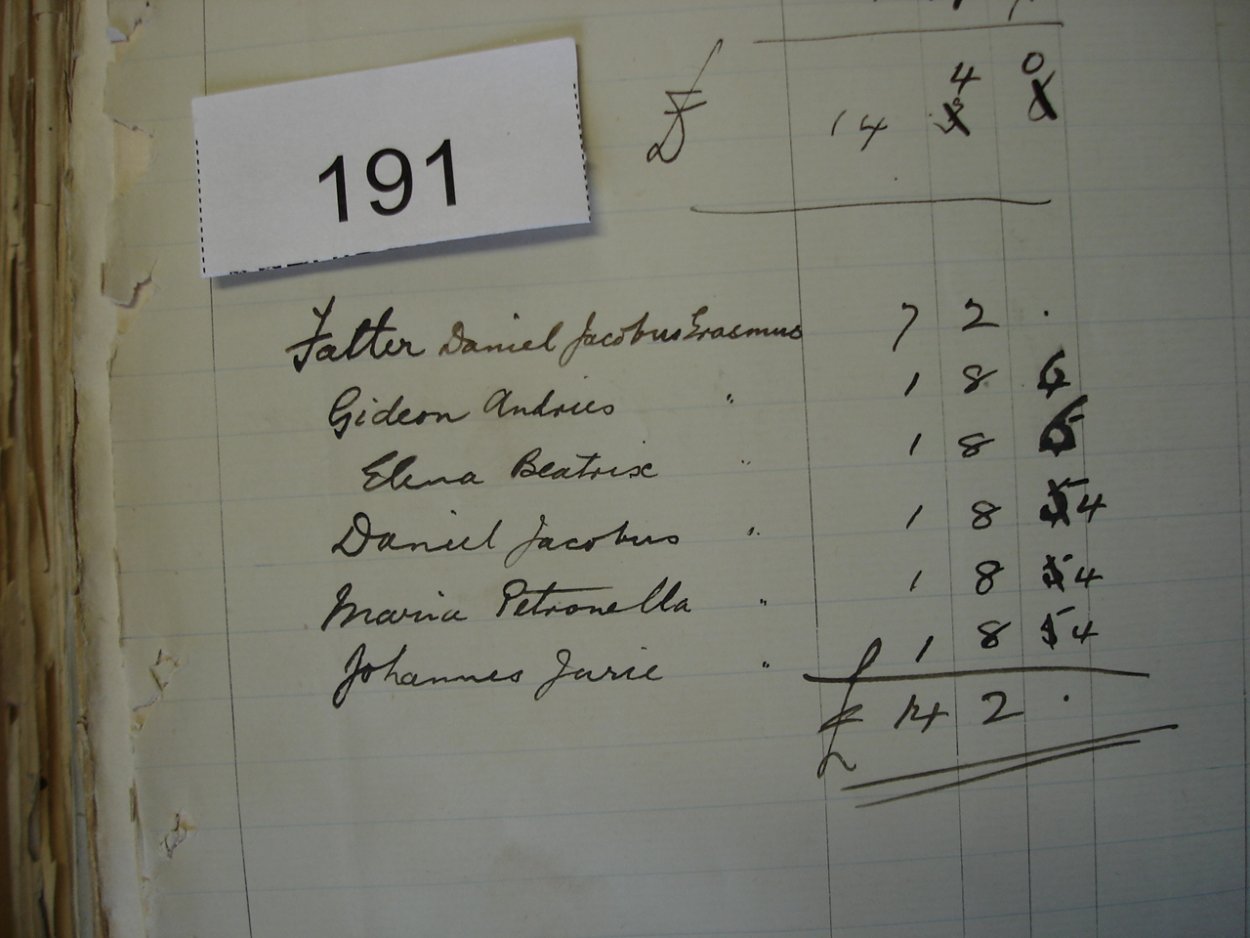 4 0
£ 14
191
Father Daniel Jacobus Erasmus 7 2 .
Gideon Andries " 1 8 4
Elena Beatrix " 1 8
Daniel Jacobus " 1 8 4
Maria Petronella " 1 8 4
Johannes Jurie " 1 8 4
£ 14 2 .